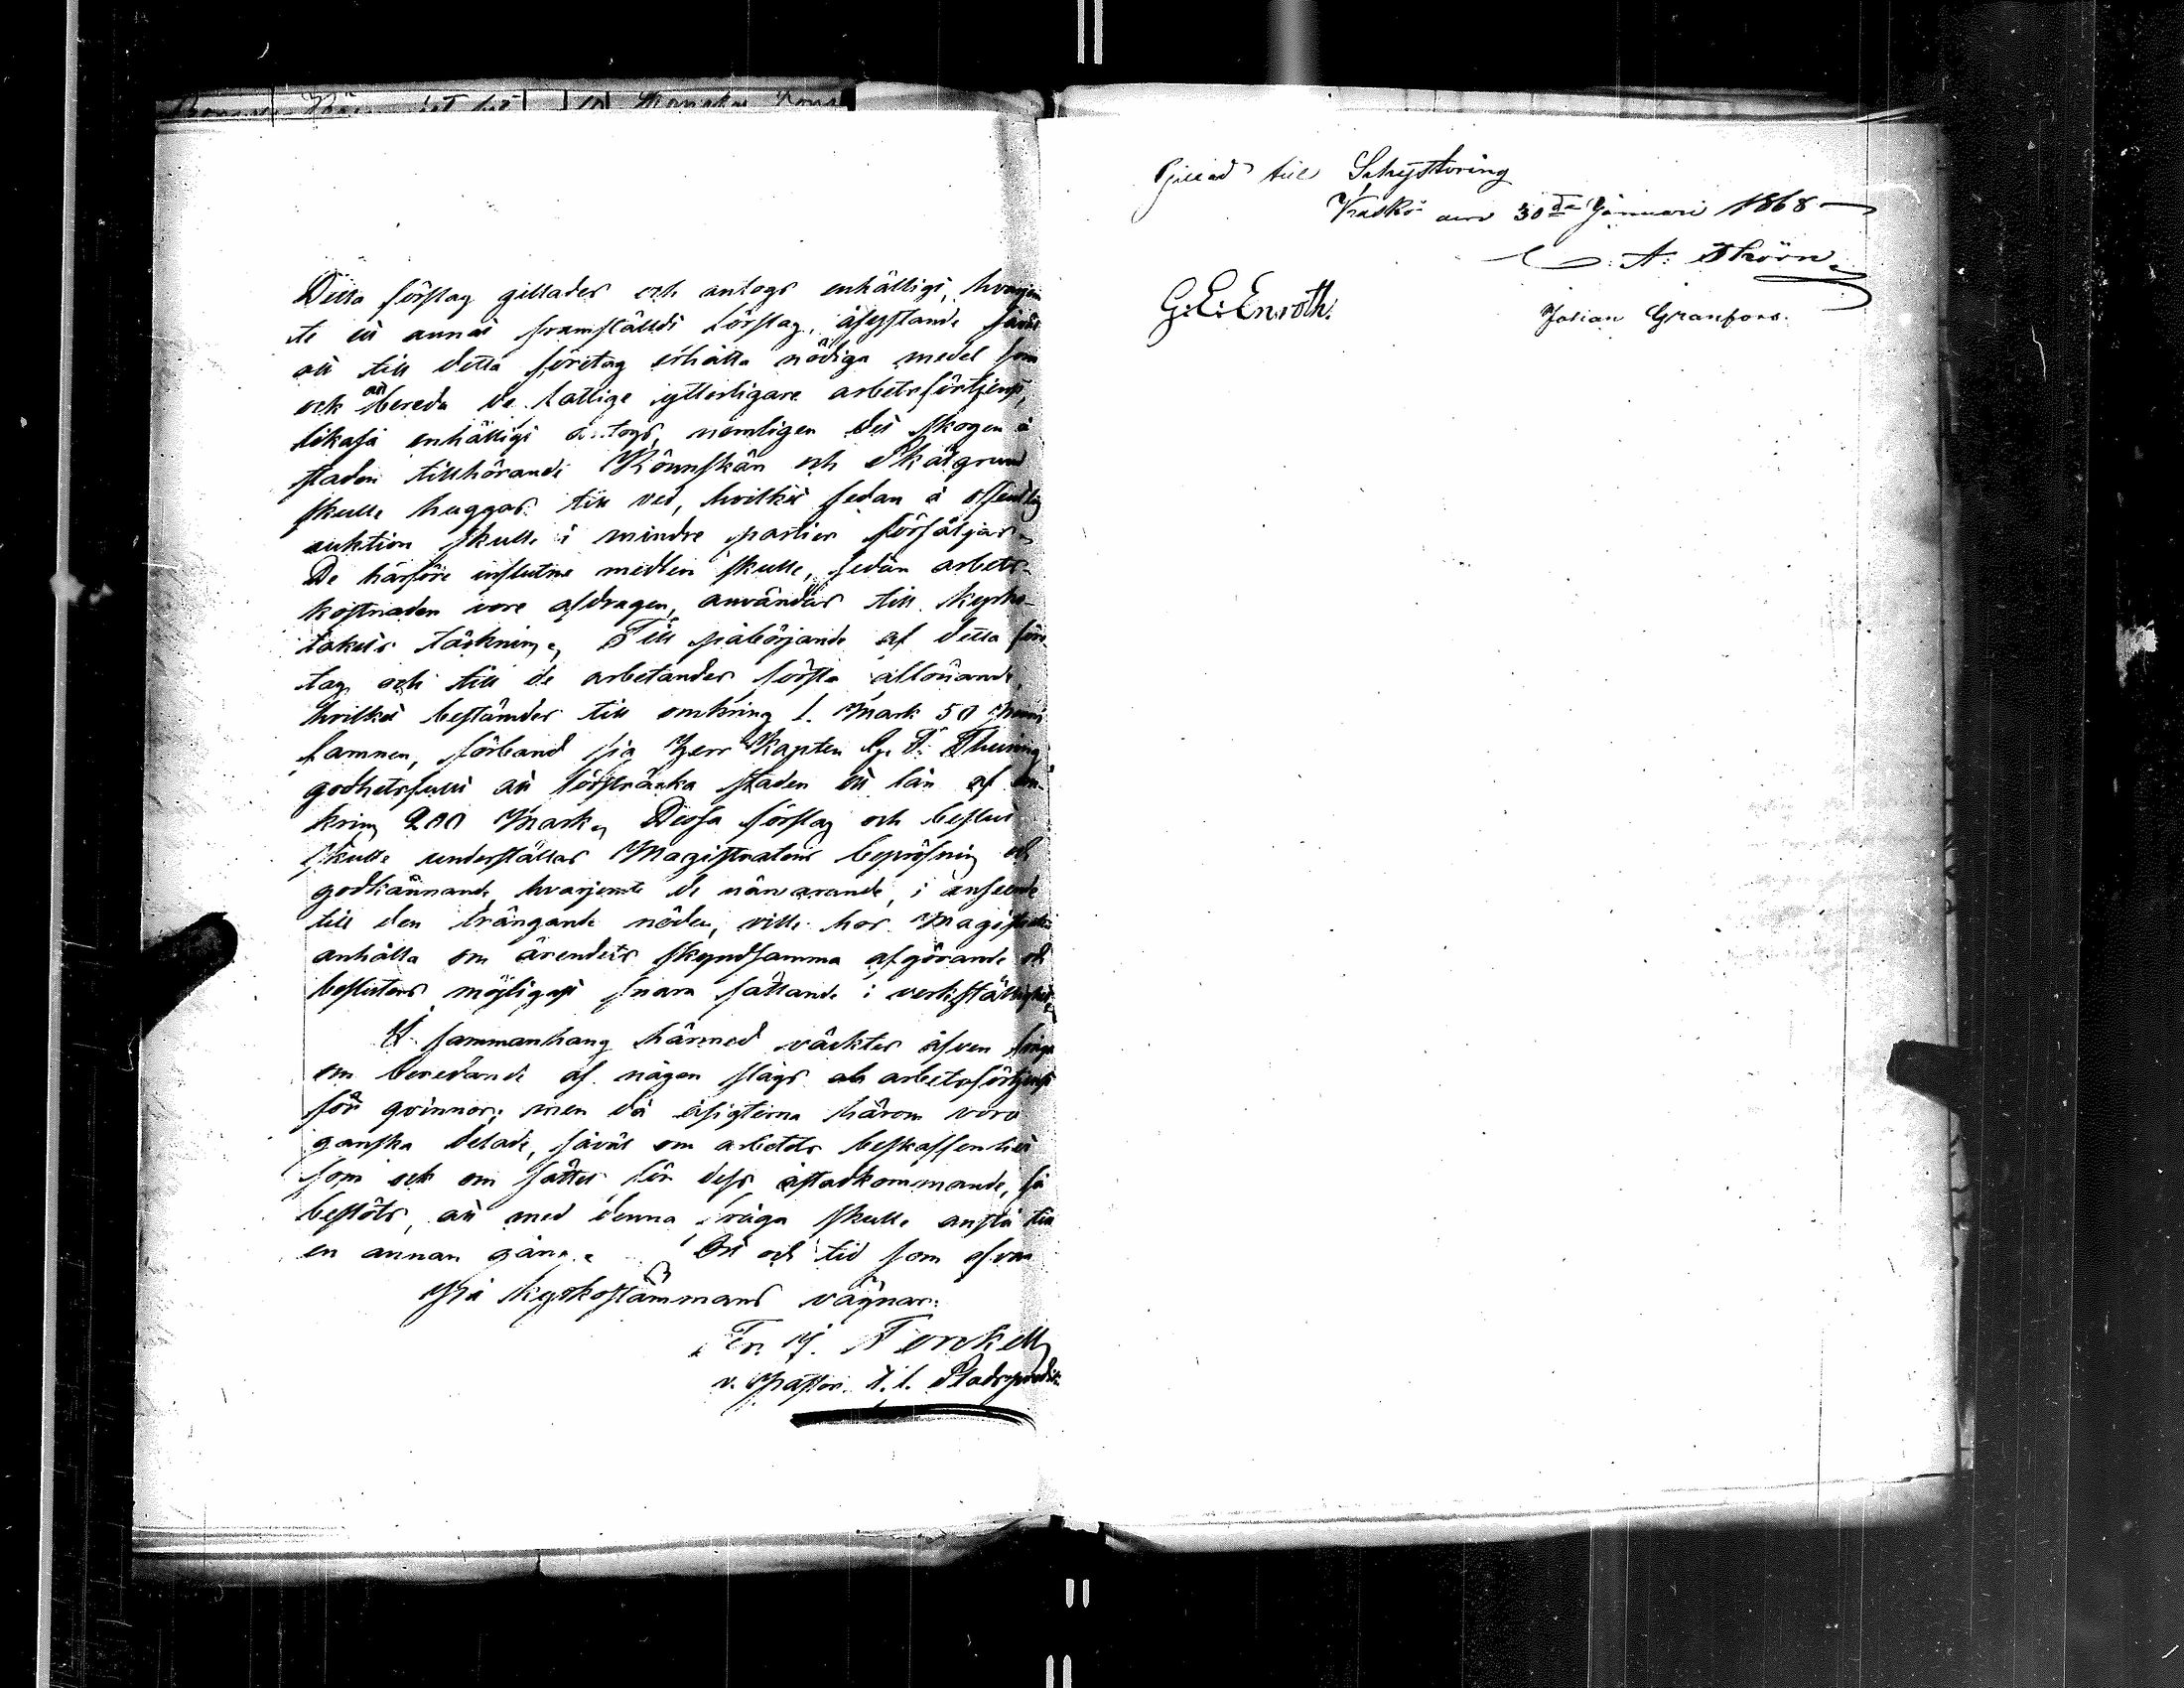 Detta förslag gillades och antogs enhälligt, hvarjem
te ett annat framstäldt förslag, åsyftande såväl
att till detta företag erhålla nödiga medel som
ock att bereda de fattige ytterligare arbetsförtjenst,
likaså enhälligt antogs, nemligen att skogen å
staden tillhörande Rönnskär och Skälgrund
skulle huggas till ved, hvilket sedan å offentlig
auktion skulle i mindre partier försäljas.
De härföre influtne medlen skulle, sedan arbets-
kostnaden vore afdragen, användas till kyrko-
takets täckning. Till påbörjande af detta före-
tag och till de arbetandes första aflönande,
hvilket bestämdes till omkring 1. Mark 50 penni
famnen, förband sig Herr Kapten
godhetsfullt att försträcka staden ett lån af om-
kring 200 Mark. Dessa förslag och beslut
skulle underställas Magistratens bepröfning och
godkännande, hvarjemte de närvarande, i anseende
till den trängande nöden, ville hos Magistraten
anhålla om ärendets skyndsamma afgörande och
beslutens möjligast snara sättande i verkställighet.
I sammanhang härmed väcktes äfven fråga
om beredande af någon slags arbetsförtjenst
för qvinnor; men då åsigterna härom voro
ganska delade, såväl om arbetets beskaffenhet
som och om sättet för dess åstadkommande, så
beslöts, att med denna fråga skulle anstå till
en annan gång. Ort och tid som ofvan
På kyrkostämmans vägnar:
Fr. J. Forsell
v. Pastor. t. f. Stadspredik.
Gillad till
Kaskö den 30de Januari 1868
G. E. Enroth.
Josian Granfors.